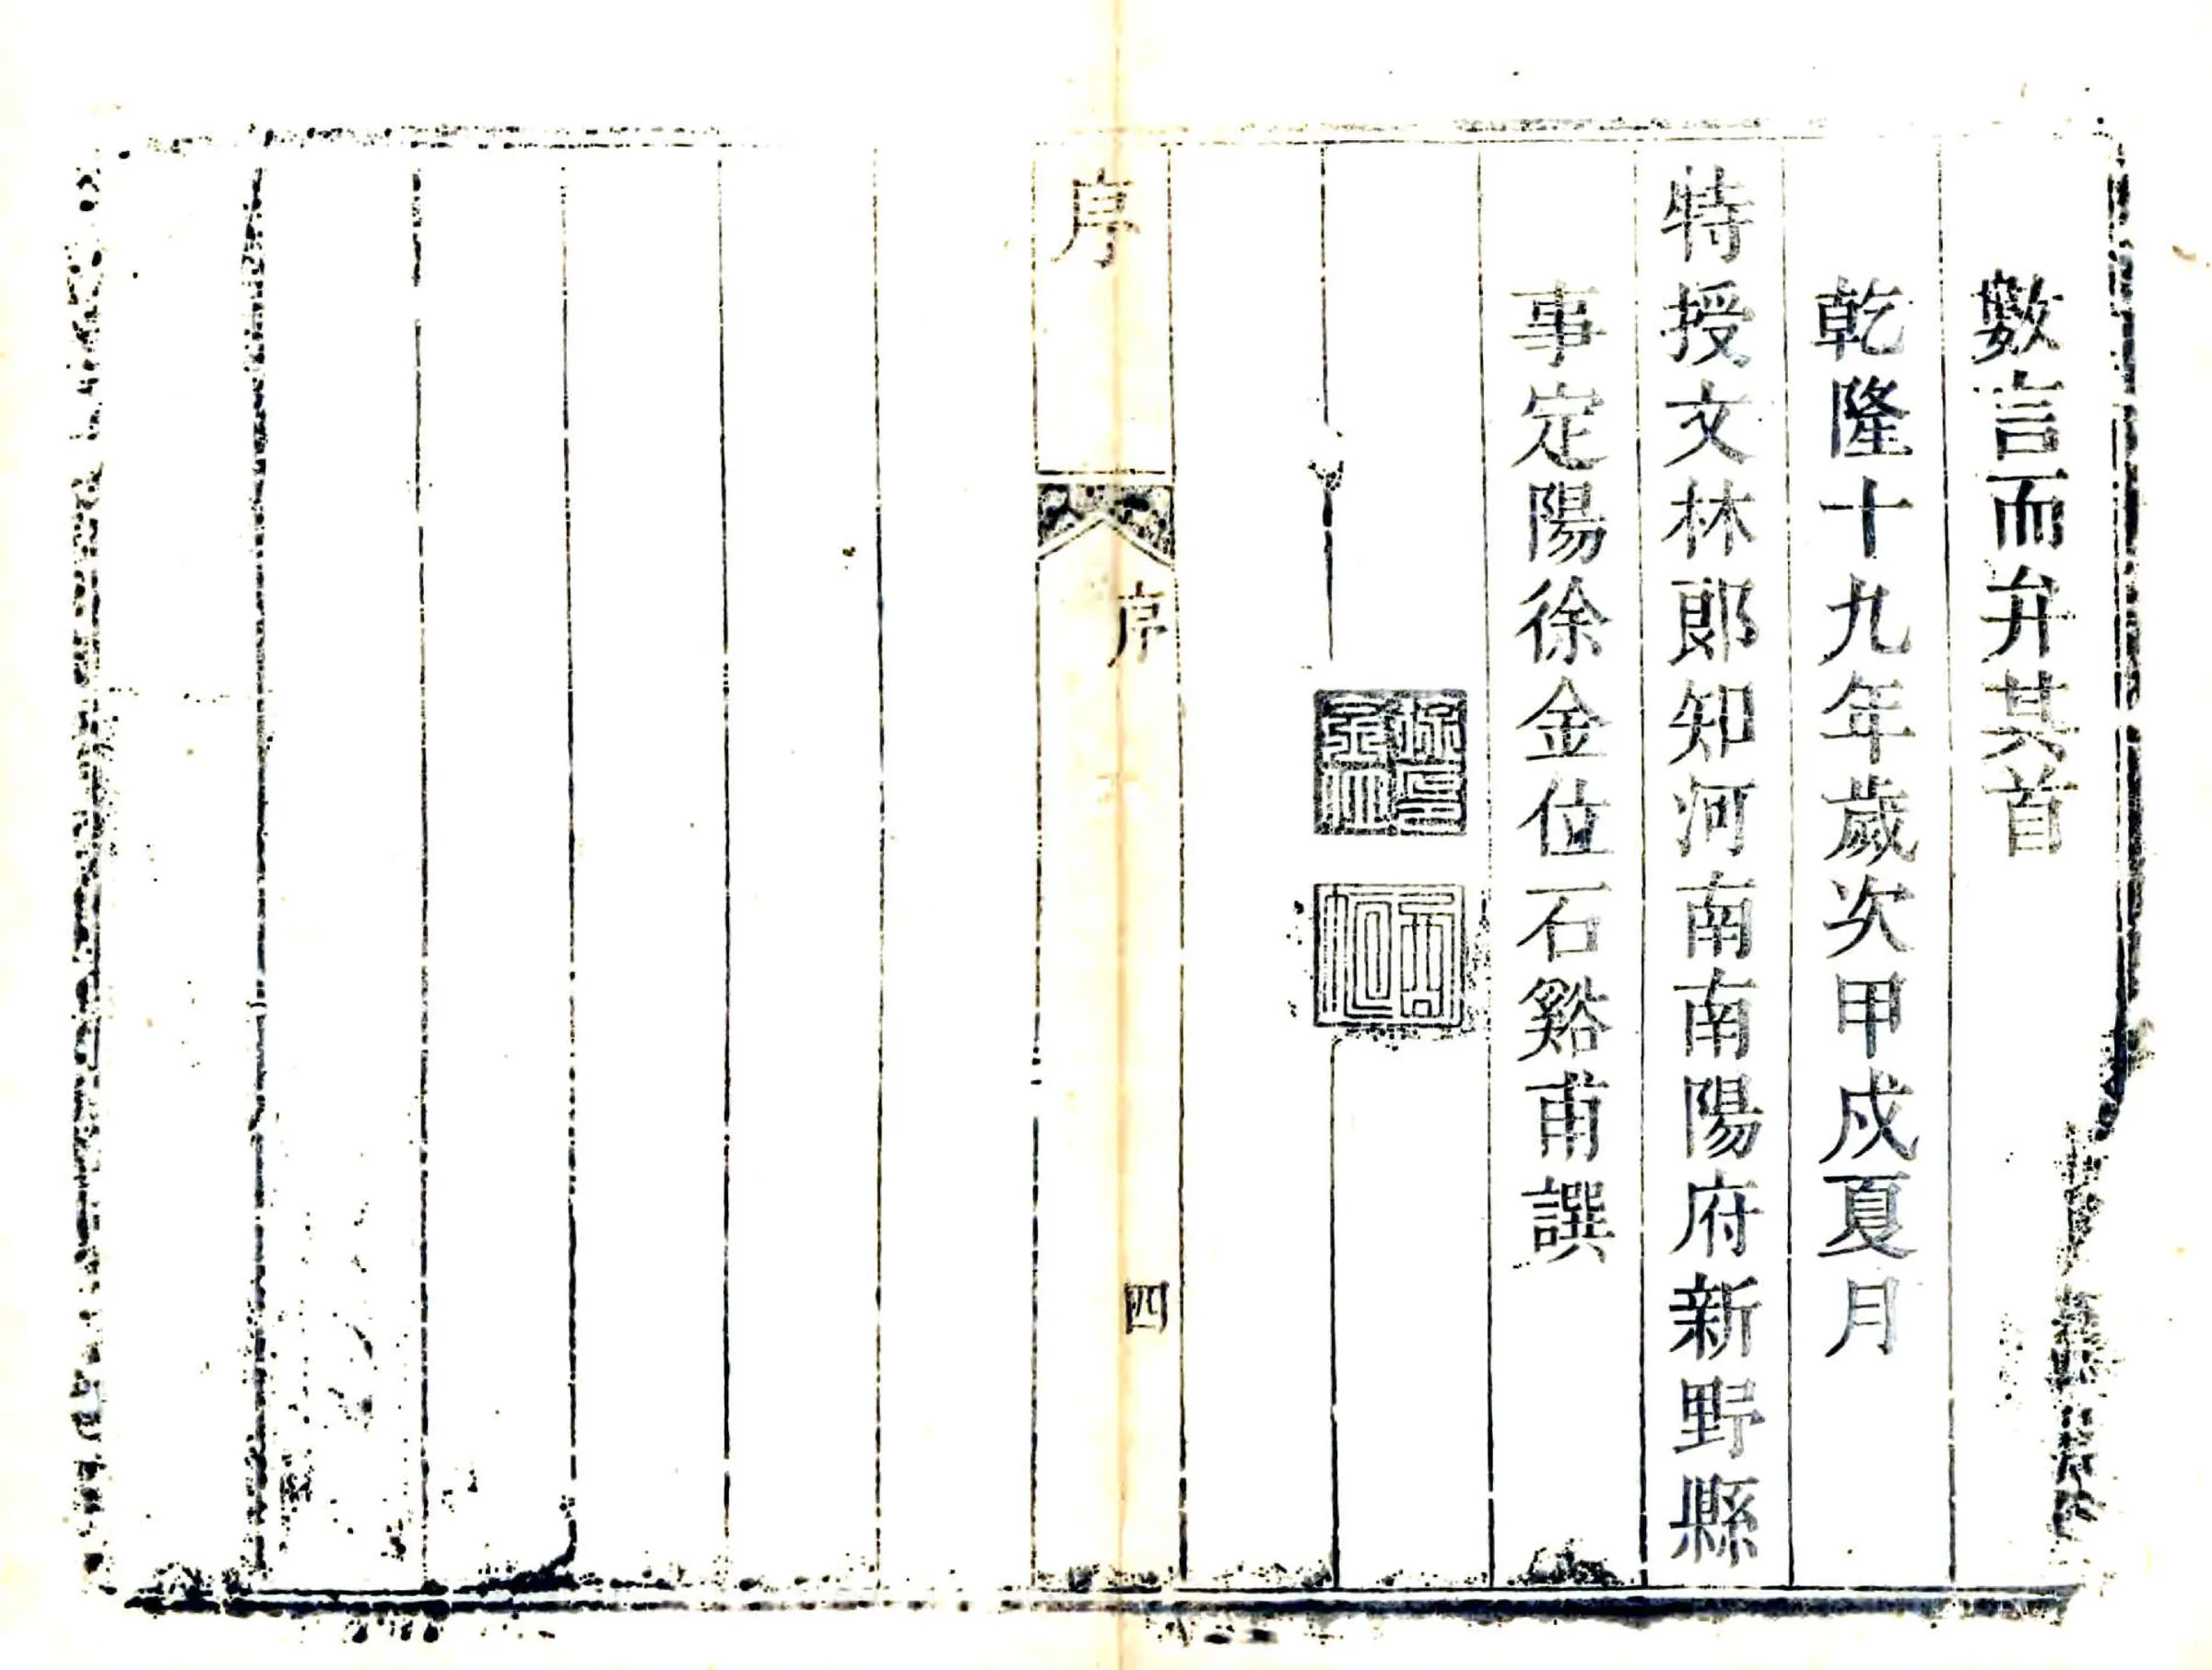 數言而弁其首
乾隆十九年歲次甲戍夏月
特授文林郎知河南南陽府新野縣
事定陽徐金位石谿甫譔
序
序
四